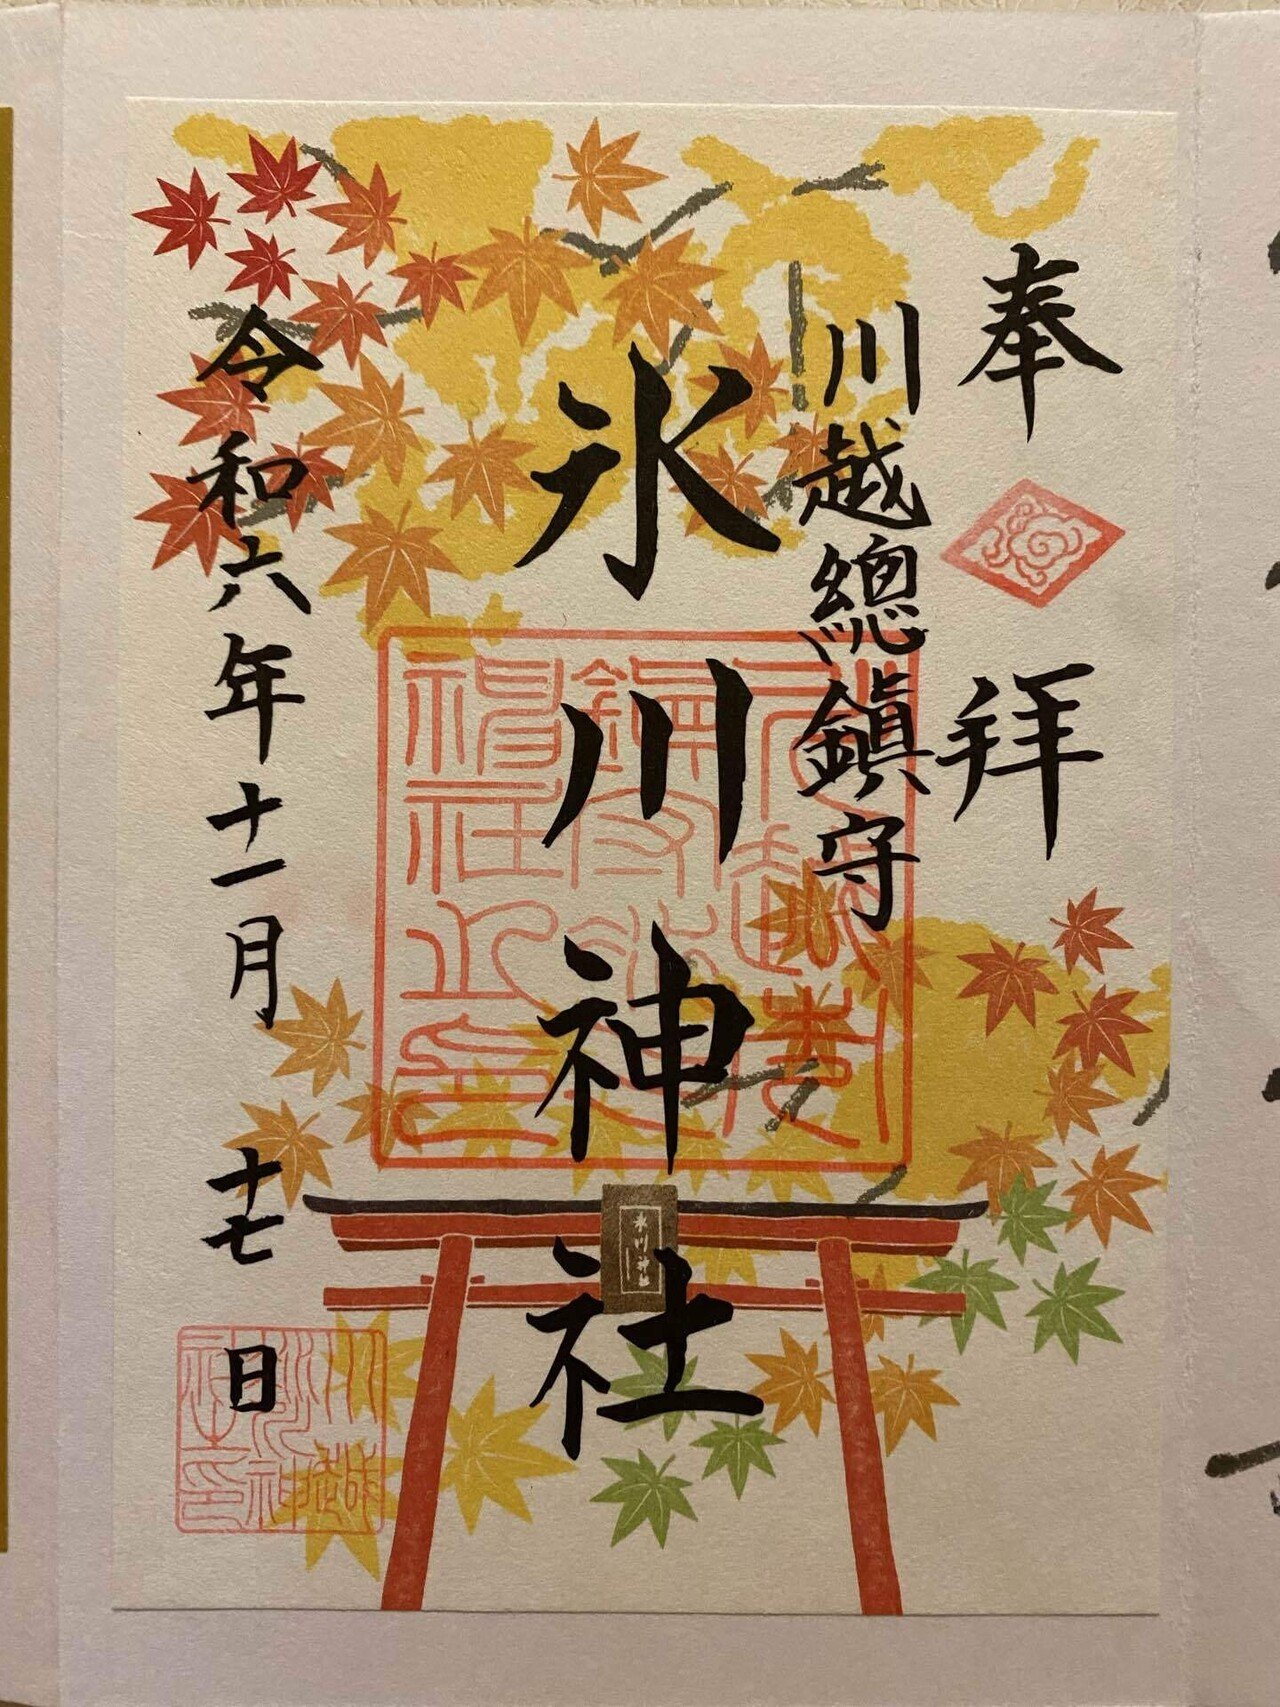 奉拝
川越總鎮守
氷川神社
令和六年十一月十七日
氷川神社